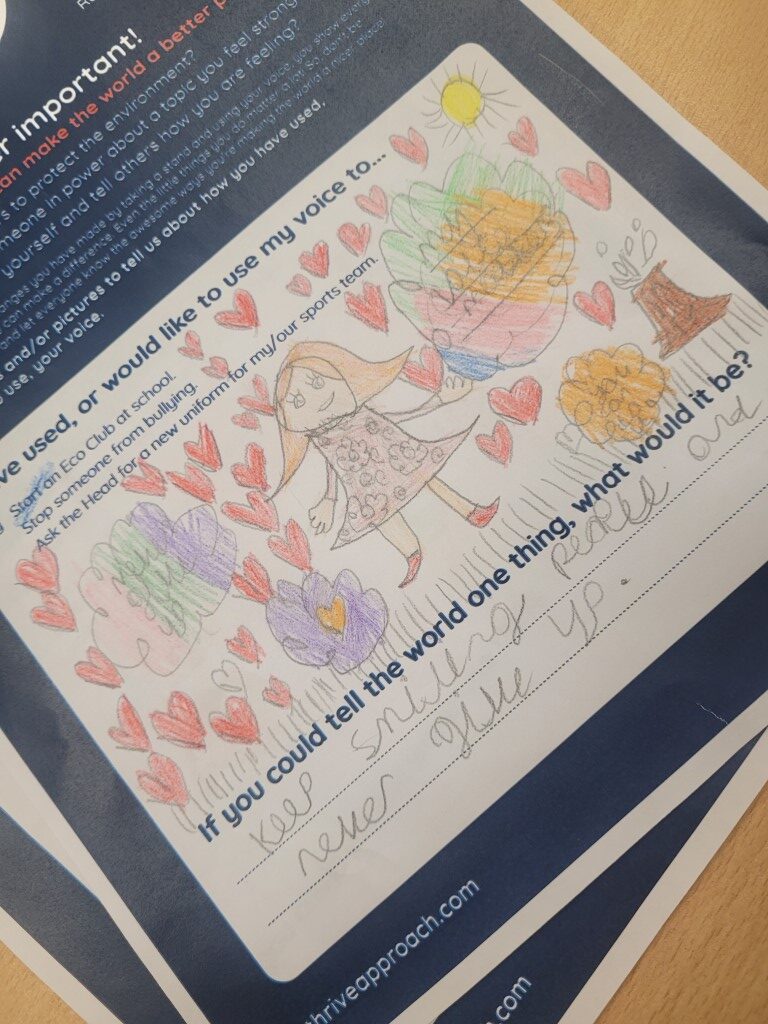 r important!
an make the world a better p
s to protect the environment?
meone in power about a topic you feel strong
yourself and tell others how you are feeling?
anges you have made by taking a stand and using your voice, you show every
can make a difference. Even the little things you do, matter a lot! So, don't be
and let everyone know the awesome ways you're making the world a nicer place!
s and/or pictures to tell us about how you have used,
o use, your voice.
ve used, or would like to use my voice to...
Start an Eco Club at school.
Stop someone from bullying.
Ask the Head for a new uniform for my/our sports team.
If you could tell the world one thing, what would it be?
keep smiling people and
never give up.
thriveapproach.com
.com